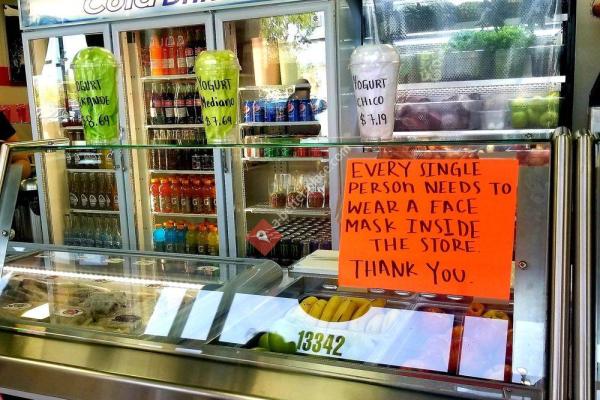 Cold Drinks
YOGURT
GRANDE
$8.69
YOGURT
Mediano
$7.69
YOGURT
CHICO
$7.19
EVERY SINGLE
PERSON NEEDS TO
WEAR A FACE
MASK INSIDE
THE STORE.
THANK YOU.
13342